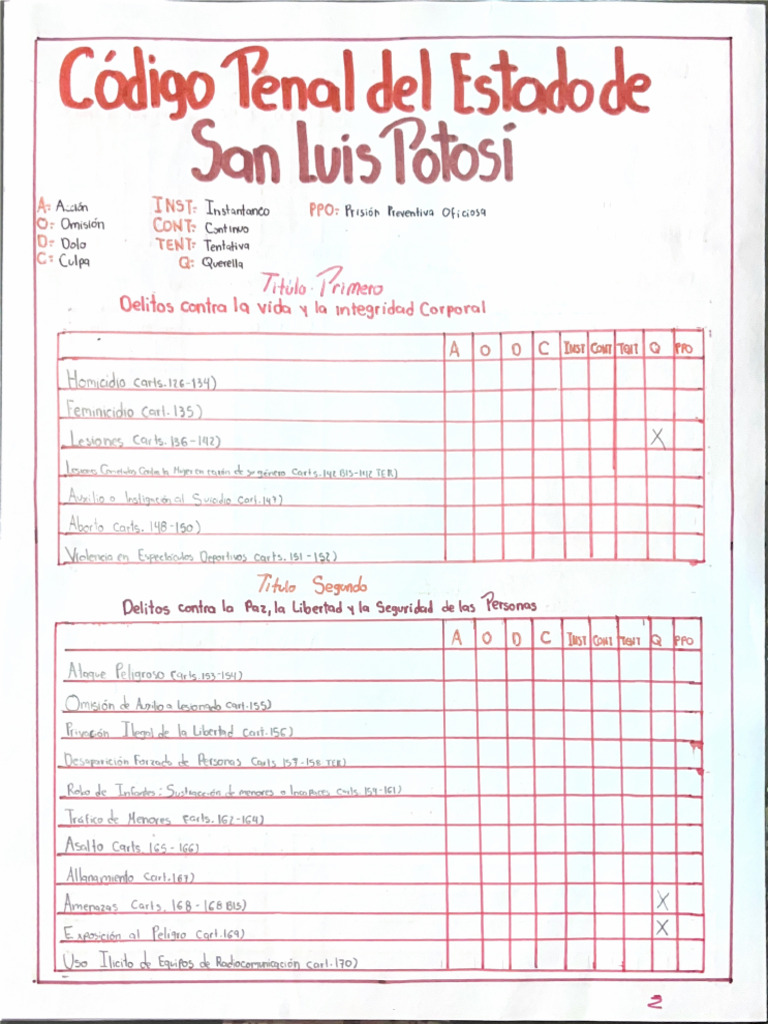 Código Penal del Estado de
San Luis Potosí
A: Acción INST: Instantaneo PPO: Prisión Preventiva Oficiosa
O: Omisión CONT: Continuo
D: Dolo TENT: Tentativa
C: Culpa Q: Querella
Titulo Primero
Delitos contra la vida y la integridad Corporal
A O D C INST CONT TENT Q PPO
Homicidio Carts. 126-134)
Feminicidio Cart. 135)
Lesiones Carts. 136-142) X
Lesiones Cometidas Contra la Mujer en razón de su género Carts. 142 BIS-142 TER)
Auxilio o Instigación al Suicidio Cart. 147)
Aborto Carts. 148-150)
Violencia en Espectáculos Deportivos Carts. 151-152)
Titulo Segundo
Delitos contra la Paz, la Libertad y la Seguridad de las Personas
A O D C INST CONT TENT Q PPO
Ataque Peligroso Carts. 153-154)
Omisión de Auxilio a Lesionado Cart. 155)
Privación Ilegal de la Libertad Cart. 156)
Desaparición Forzada de Personas Carts 157-158 TER)
Robo de Infantes; Sustracción de menores o Incapaces Carts. 159-161)
Tráfico de Menores Carts. 162-164)
Asalto Carts. 165-166)
Allanamiento Cart. 167)
Amenazas Carts. 168-168 BIS) X
Exposición al Peligro Cart. 169) X
Uso Ilicito de Equipos de Radiocomunicación Cart. 170)
2